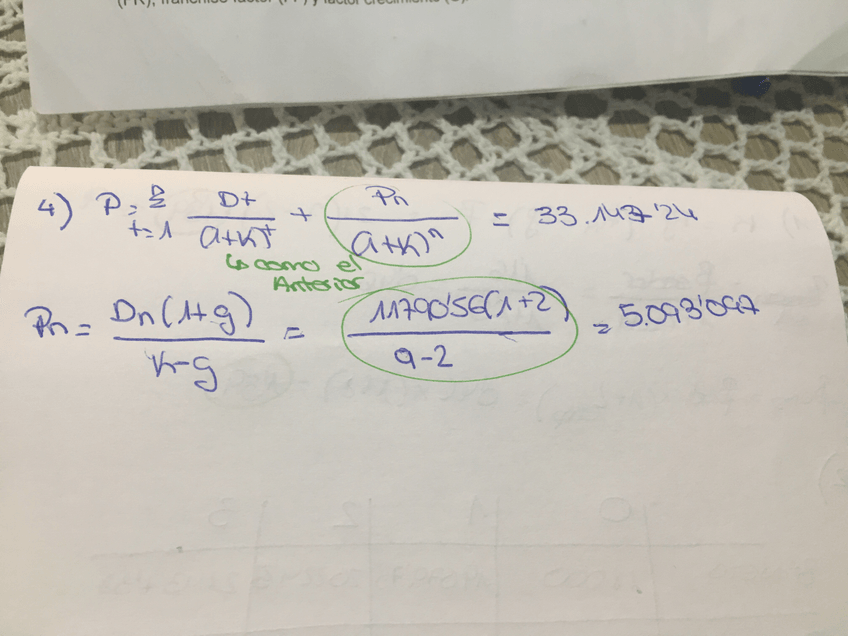 (PR), franchise factor (FF) y factor crecimiento (G).
4) P = Σ n t=1 Dt / (1+k)^t + Pn / (1+k)^n = 33.147'24
↳ como el
Anterior
Pn = Dn(1+g) / k-g = 11790'56(1+2) / 9-2 = 5.093'097